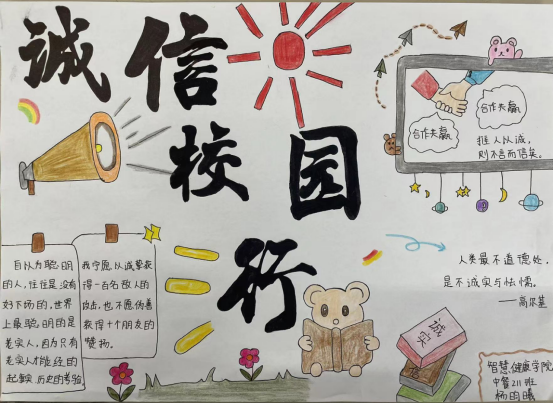 诚信
校园
行
合作共赢
合作共赢
推人以诚，
则不言而信矣。
自以为聪明
的人，往往是没有
好下场的，世界
上最聪明的是
老实人，因为只有
老实人才能经的
起事实历史的考验
我宁愿以诚挚获
得一百名敌人的
攻击，也不愿伪善
获得十个朋友的
赞扬。
人类最不道德处，
是不诚实与怯懦。
——高尔基
诚
实
智慧健康学院
中餐211班
杨明曦